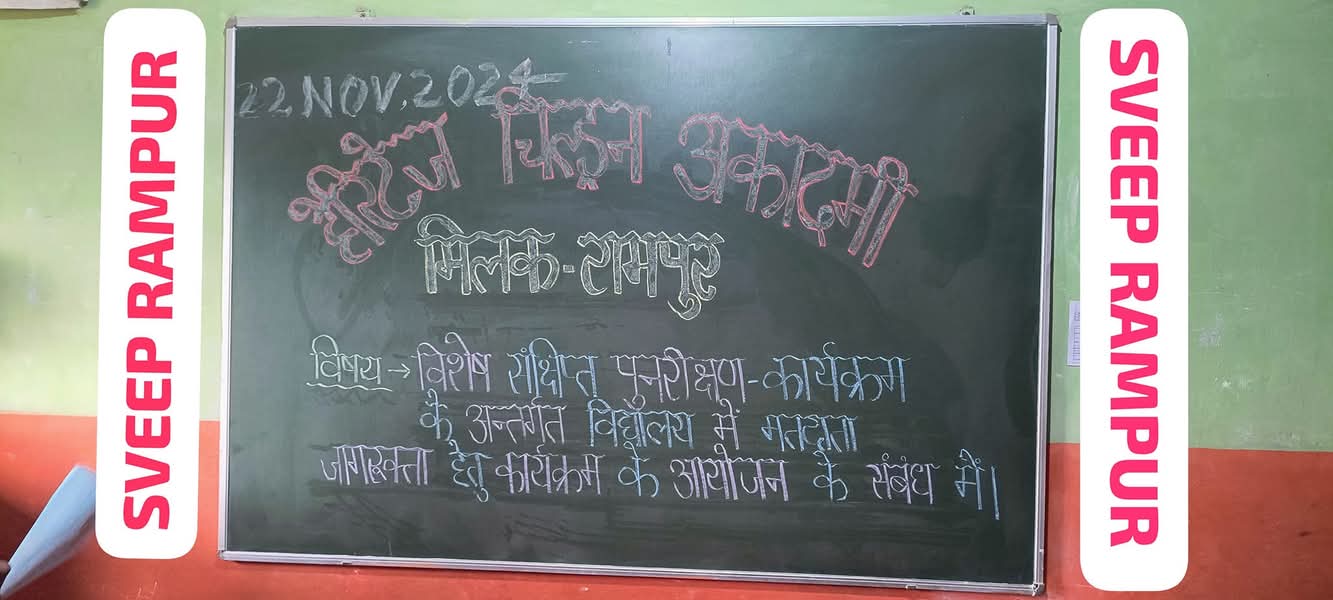 SVEEP RAMPUR
22 NOV. 2024
हैरिटेज चिल्ड्रन अकादमी
मिलक-रामपुर
विषय → विशेष संक्षिप्त पुनरीक्षण-कार्यक्रम
के अन्तर्गत विद्यालय में मतदाता
जागरूक्ता हेतु कार्यक्रम के आयोजन के संबंध में।
SVEEP RAMPUR